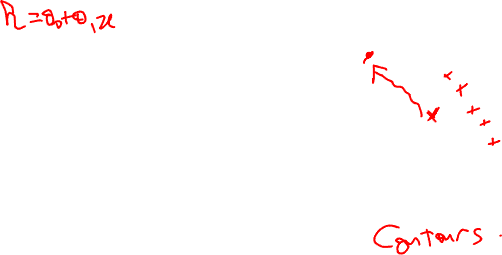 h=θ₀+θ₁x
Contours